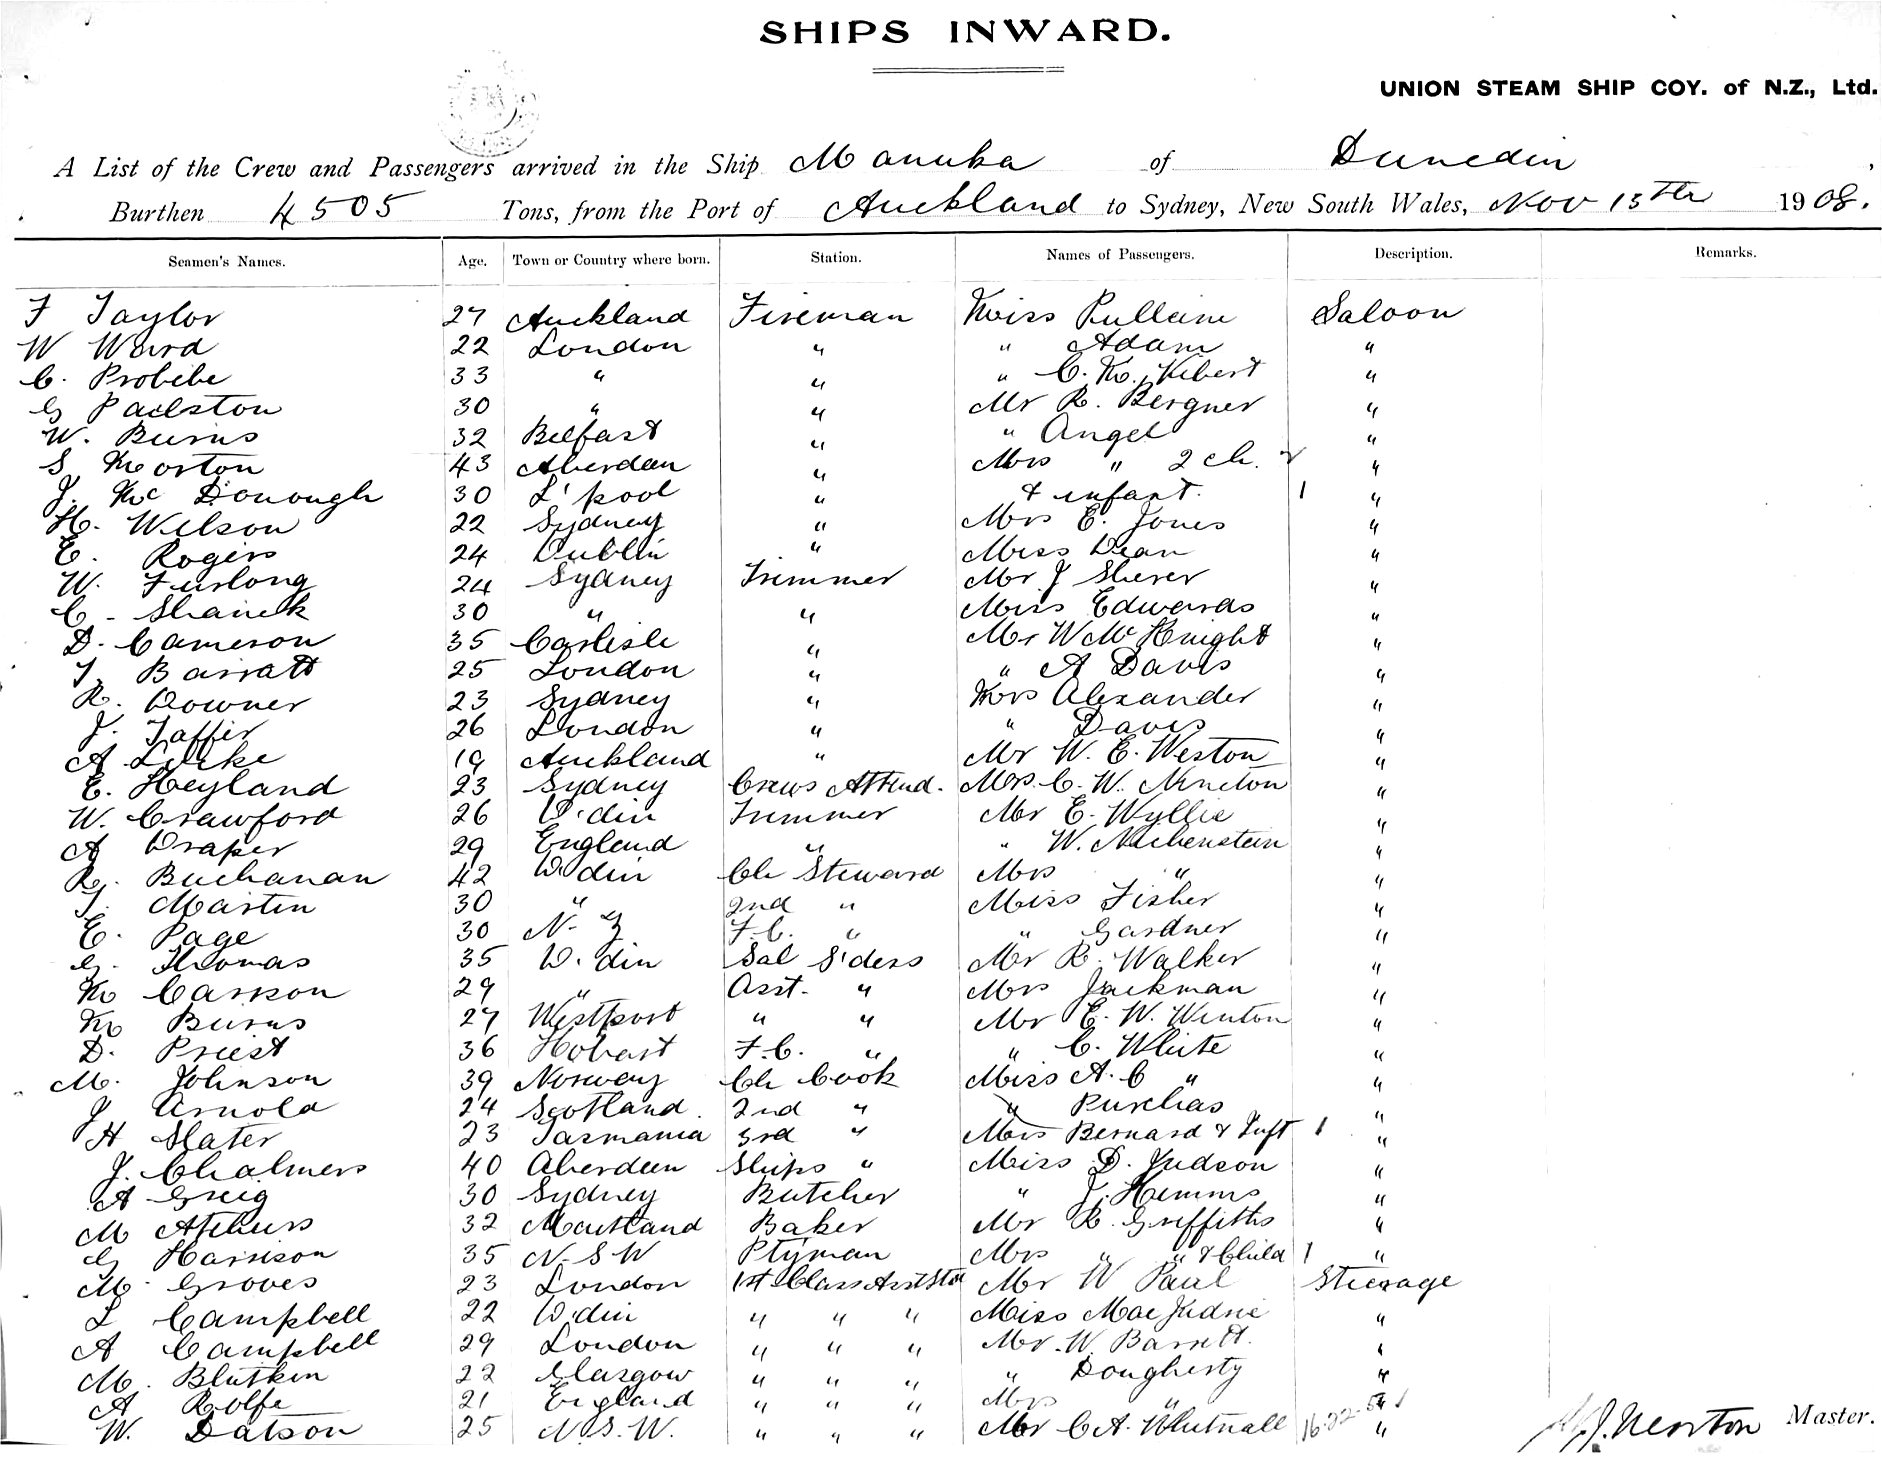 SHIPS INWARD.
UNION STEAM SHIP COY. of N.Z., Ltd.
A List of the Crew and Passengers arrived in the Ship Manuka of Dunedin
Burthen 4505 Tons, from the Port of Auckland to Sydney, New South Wales, Nov 15th 1908.
Seamen's Names. Age. Town or Country where born. Station. Names of Passengers. Description. Remarks.
F Taylor 27 Auckland Fireman Miss Pulleine Saloon
W Ward 22 London " " Adam "
C. Probebe 33 " " " C. M. Kebert "
G Pailston 30 " " Mr R. Bergner "
W. Burns 32 Belfast " " Angel "
S Morton 43 Aberdeen " Mrs " 2 ch. "
J. McDonough 30 L'pool " & infant. 1 "
H. Wilson 22 Sydney " Mrs E. Jones "
E. Rogers 24 Dublin " Miss Dean "
W. Furlong 24 Sydney Trimmer Mr J Sherer "
C. Shanek 30 " " Miss Edwards "
D. Cameron 35 Carlisle " Mr W McKnight "
T. Barratt 25 London " " A Davis "
R. Downer 23 Sydney " Mrs Alexander "
J. Taffir 26 London " " Davis "
A Locke 19 Auckland " Mr W. E. Weston "
E. Heyland 23 Sydney Crews Attend. Mrs. C. W. Newton "
W. Crawford 26 D'din Trimmer Mr E. Wyllie "
A Draper 29 England " " W. Nichenstein "
R. Buchanan 42 D'din Ch Steward Mrs " "
T. Martin 30 " 2nd " Miss Fisher "
E. Page 30 N. Z F.C. " " Gardner "
G. Thomas 35 D. din Sal S'dess Mr R. Walker "
M Carson 29 " Asst. " Mrs Jackman "
M Burns 27 Westport " " Mr E. W. Winton "
D. Priest 36 Hobart F.C. " " C. White "
M. Johnson 39 Norway Ch Cook Miss A. C " "
J Arnold 24 Scotland. 2nd " " Purchas "
H Slater 23 Tasmania 3rd " Mrs Bernard & Inft 1 "
J. Chalmers 40 Aberdeen Ships " Miss D. Judson "
A Greig 30 Sydney Butcher " J. Hemms "
M Athews 32 Maitland Baker Mr R. Griffiths "
G Harrison 35 N. S W Ptyman Mrs " " & Child 1 "
M Groves 23 London 1st Class Asst Std Mr W Paul Steerage
L Campbell 22 D.din " " " Miss Mae Judnie "
A Campbell 29 London " " " Mr. W. Barrett. "
M. Blutken 22 Glasgow " " " " Dougherty "
A Rolfe 21 England " " " Mrs "
W. Datson 25 N.S.W. " " " Mr C A. Whutnall 16-22-54 1 "
J. Newton Master.